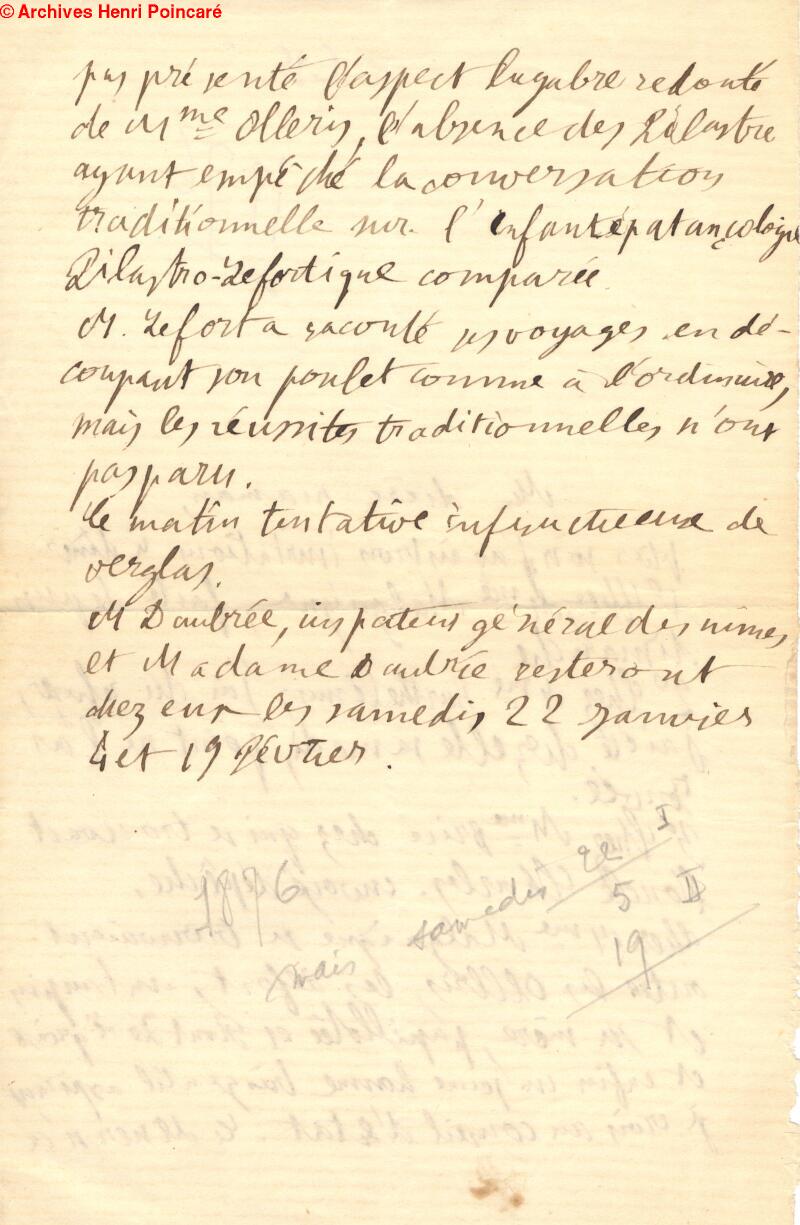 © Archives Henri Poincaré
pas présenté l'aspect lugubre redouté
de Mme Olleris, l'absence des Pilastre
ayant empêché la conversation
traditionnelle sur l'infantépatançologie
Pilastro-Lefortique comparée.
M. Lefort a raconté ses voyages en dé-
coupant son poulet comme à l'ordinaire,
mais les réussites traditionnelles n'ont
pas paru.
Le matin tentative infructueuse de
verglas.
M Daubrée, inspateur général des mines
et Madame Daubrée resteront
chez eux les samedis 22 Janvier
4 et 19 Février.
1876
mais samedis 22 I
5 II
19